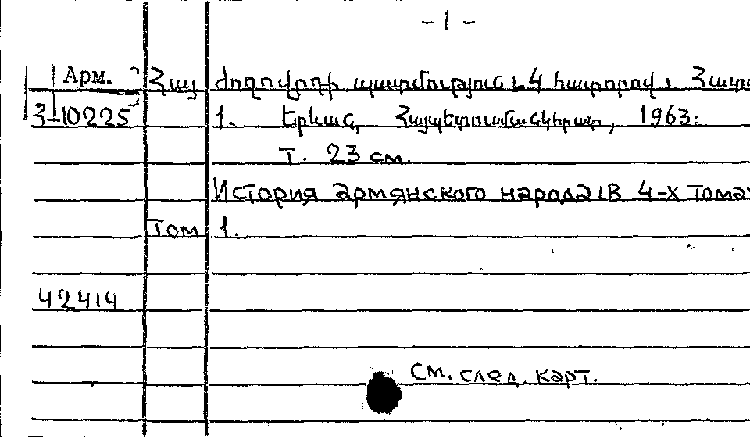 – 1 –
Арм. Հայ ժողովրդի պատմություն. 4 հատորով.
3-10225 1. Երևան, Հայպետուսմանկհրատ, 1963.
т. 23 см.
История армянского народа. В 4-х томах
Том 1.
42414
См. след. карт.